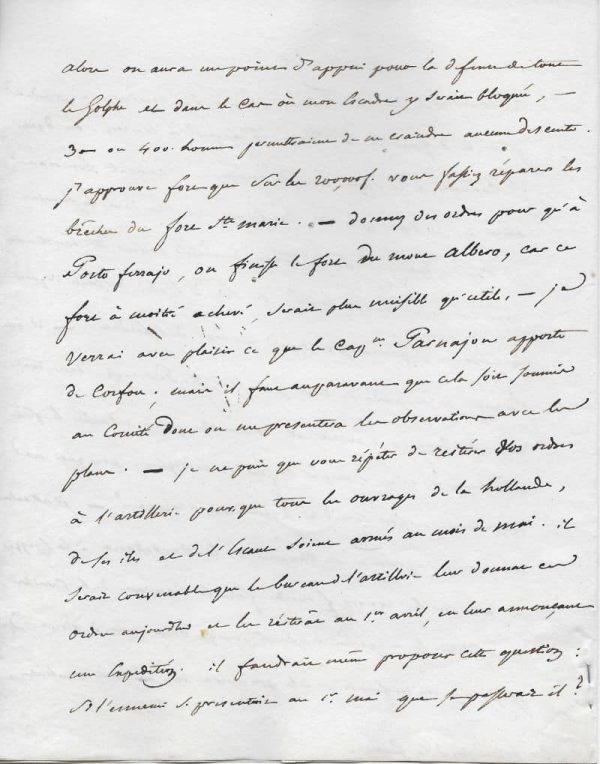 alors on aura un point d'appui pour la défense de tout
le Golphe et dans le Cas où mon Escadre y serait bloquée, —
3 ou 400. hommes permettraient de ne craindre aucune descente.
j'approuve fort que sur les 200,000f. vous fassiez réparer les
brèches du fort Ste marie. — donnez des ordres pour qu'à
Porto ferrajo, on finisse le fort du mont albero, car ce
fort à moitié achevé, serait plus nuisible qu'utile, — je
verrai avec plaisir ce que le Capne Parnajon apporte
de Corfou ; mais il faut auparavant que cela soit soumis
au Comité dont on me présentera les observations avec les
plans. — je ne puis que vous répéter de réitérer vos ordres
à l'artillerie pour que tous les ouvrages de la hollande,
de ses iles et de l'Escaut soient armés au mois de mai. il
serait convenable que le bureau de l'artillerie leur donnat cet
ordre aujourdhui et le réitérât au 1er avril, en leur annonçant
une Expédition. il faudrait même proposer cette question :
Si l'ennemi se présentait au 1er mai que se passerait il ?